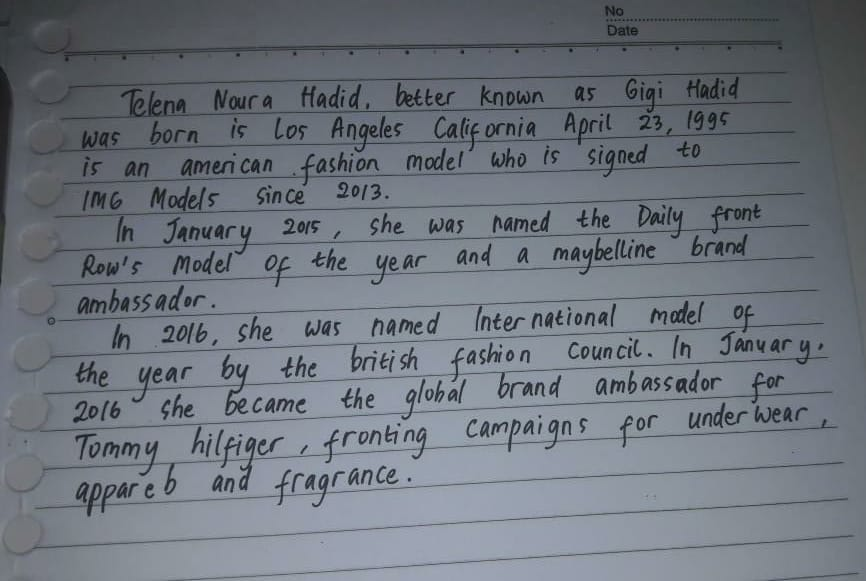 No
Date
Telena Noura Hadid, better known as Gigi Hadid
was born is Los Angeles California April 23, 1995
is an american fashion model who is signed to
IMG Models since 2013.
In January 2015, she was named the Daily front
Row's Model of the year and a maybelline brand
ambassador.
In 2016, she was named International model of
the year by the british fashion Council. In January,
2016 she became the global brand ambassador for
Tommy hilfiger, fronting campaigns for underwear,
appareb and fragrance.